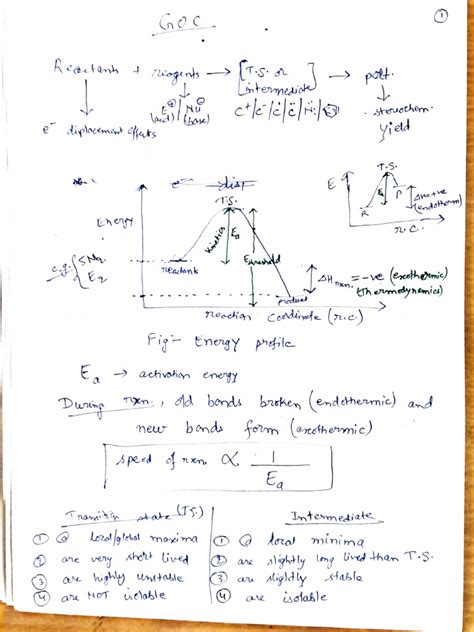 GOC
①
Reactants + reagents → [T.S. or intermediate] → pdt.
E⊕ (acid) | Nu⊖ (base)
C⁺/C⁻/Ċ/C̈/N̈:/
stereochem.
e⁻ displacement effects
yield
T.S.
E
Ea
R
P
ΔH=+ve (endotherm)
r.c.
e⁻ disp
T.S.
Energy
Kinetics
Ea
Ethreshold
e.g. { SN2 E2
reactants
ΔHrxn. = -ve (exothermic)
(thermodynamics)
product
reaction coordinate (r.c.)
Fig:- Energy profile
Ea → activation energy
During rxn., old bonds broken (endothermic) and
new bonds form (exothermic)
speed of rxn. ∝ 1/Ea
Transition state (T.S.)
① @ local/global maxima
② are very short lived
③ are highly unstable
④ are NOT isolable
Intermediate
① @ local minima
② are slightly long lived than T.S.
③ are slightly stable
④ are isolable